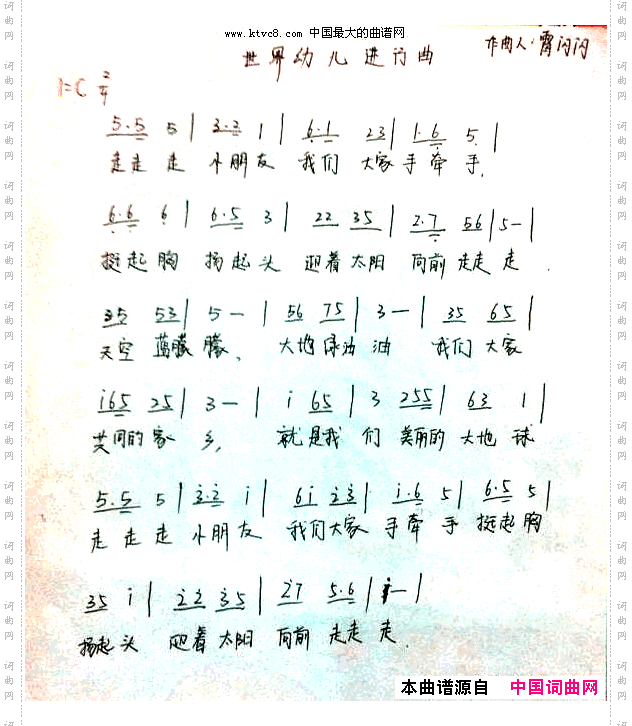 www.ktvc8.com 中国最大的曲谱网
世界幼儿进行曲
作曲人:霄闪闪
1=C 2/4
5.5 5 | 3.2 1 | 6.1 23 | 1.6 5 |
走走 走 小朋友 我们 大家 手牵 手,
6.6 6 | 6.5 3 | 22 35 | 2.7 56 | 5- |
挺起胸 扬起头 迎着太阳 向前 走走 走.
35 53 | 5 - | 56 75 | 3 - | 35 65 |
天空 蓝朦 朦, 大地绿油 油 我们 大家
i65 25 | 3 - | i 65 | 3 255 | 63 1 |
共同的家 乡, 就是我 们 美丽的 大地 球
5.5 5 | 3.2 i | 6i 23 | i.6 5 | 6.5 5 |
走走走 小朋友 我们大家 手牵手 挺起胸
35 i | 22 35 | 27 5.6 | i - |
扬起头 迎着太阳 向前 走走 走.
本曲谱源自 中国词曲网
词曲网
词曲网
词曲网
词曲网
词曲网
词曲网
词曲网
词曲网
词曲网
词曲网
词曲网
词曲网
词曲网
词曲网